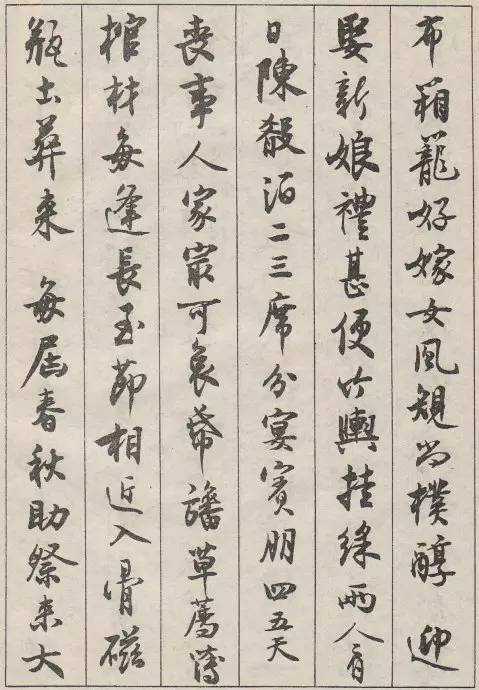 布箱籠好嫁女風規尚樸醇 迎
娶新娘禮甚便竹輿挂綵兩人肩
日陳殽酒二三席分宴賓朋四五天
喪事人家冣可哀旛草薦薄
棺材每逢長至節相近入骨磁
瓶土葬来 每届春秋助祭来大